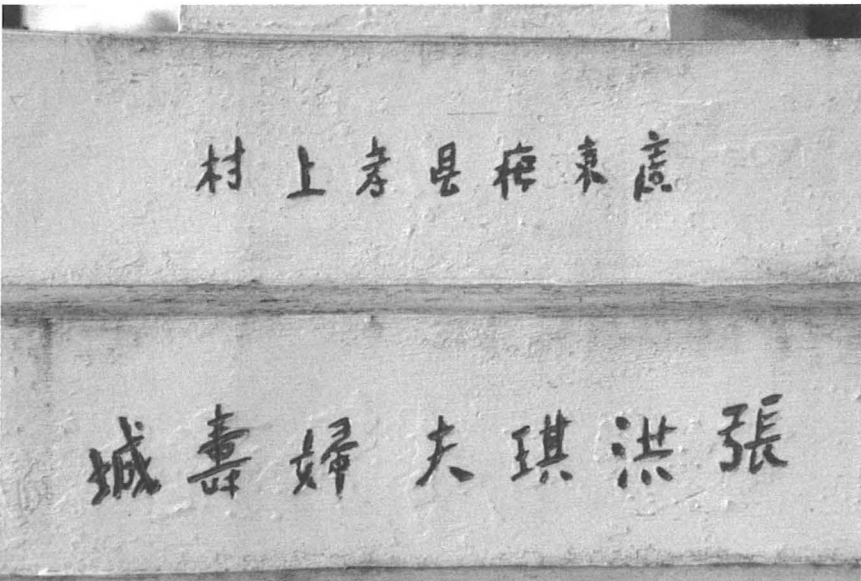 廣東梅县孝上村
張洪琪夫婦壽城